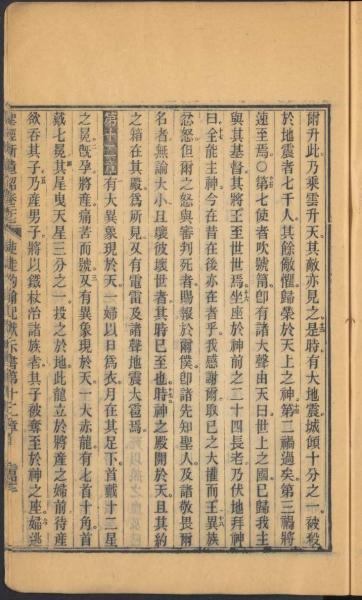 爾升此乃乘雲升天其敵亦見之是時有大地震城傾十分之一被殺
於地震者七千人其餘敵懼歸榮於天上之神第二禍過矣第三禍將
速至焉○第七使者吹號筩卽有諸大聲由天曰世上之國已歸我主
與其基督其將王至世世焉坐座於神前之二十四長老乃伏地拜神
曰全能主神今在昔在後亦在者乎我感謝爾取已之大權而王異族
忿怒但爾之怒與審判死者賜報於爾僕卽諸先知聖人及諸敬畏爾
名者無論大小且壞彼壞世者其時已至也時神之殿開於天且其約
之箱在其殿爲所見又有電雷及諸聲地震大雹焉
第十二章 有大異象現於天一婦以日爲衣月在其足下首戴十二星
之冕旣孕將產痛苦而號又有異象現於天一大赤龍有七首十角首
戴七冕其尾曳天星三分之一投之於地此龍立於將產之婦前待產
欲吞其子乃產男子將以鐵杖治諸族者其子被奪至於神之座婦逃